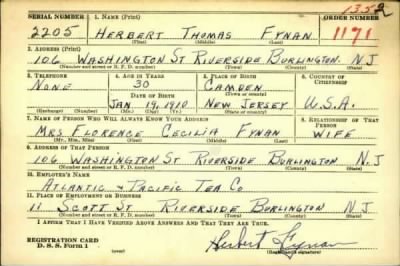 SERIAL NUMBER 1. NAME (Print) ORDER NUMBER
2205 HERBERT THOMAS FYNAN 1171
(First) (Middle) (Last)
2. ADDRESS (Print)
106 WASHINGTON ST RIVERSIDE BURLINGTON N.J
(Number and street or R. F. D. number) (Town) (County) (State)
3. TELEPHONE 4. AGE IN YEARS 5. PLACE OF BIRTH 6. COUNTRY OF CITIZENSHIP
NONE 30 CAMDEN
DATE OF BIRTH (Town or county)
JAN. 19, 1910 NEW JERSEY U.S.A.
(Exchange) (Number) (Mo.) (Day) (Yr.) (State or country)
7. NAME OF PERSON WHO WILL ALWAYS KNOW YOUR ADDRESS 8. RELATIONSHIP OF THAT PERSON
MRS FLORENCE CECILIA FYNAN WIFE
(Mr., Mrs., Miss) (First) (Middle) (Last)
9. ADDRESS OF THAT PERSON
106 WASHINGTON ST RIVERSIDE BURLINGTON N.J
(Number and street or R. F. D. number) (Town) (County) (State)
10. EMPLOYER'S NAME
ATLANTIC & PACIFIC TEA CO
11. PLACE OF EMPLOYMENT OR BUSINESS
11 SCOTT ST RIVERSIDE BURLINGTON N J
(Number and street or R. F. D. number) (Town) (County) (State)
I AFFIRM THAT I HAVE VERIFIED ABOVE ANSWERS AND THAT THEY ARE TRUE.
REGISTRATION CARD
D. S. S. Form 1 Herbert Fynan
(Registrant's signature)